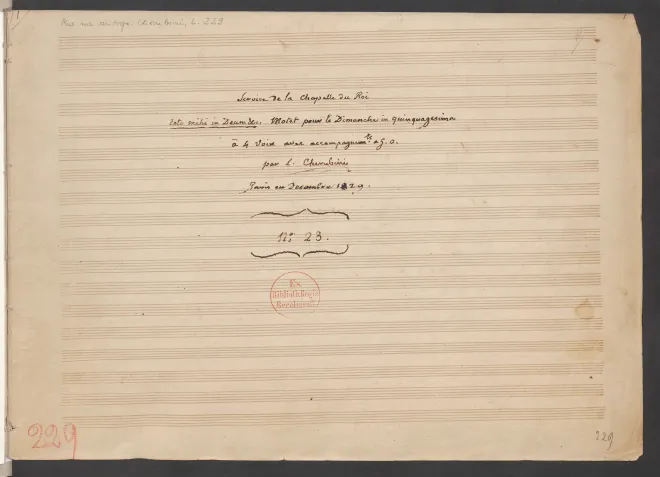 Mus. ms. autogr. Cherubini, L. 229
Service de la Chapelle du Roi
Esto mihi in Deum &c. Motet pour le Dimanche in quinquagesima
à 4 Voix avec accompagnemt. à G. O.
par L. Cherubini
Paris en Decembre 1829.
No: 23.
Ex
Biblioth. Regia
Berolinensi.
229
229